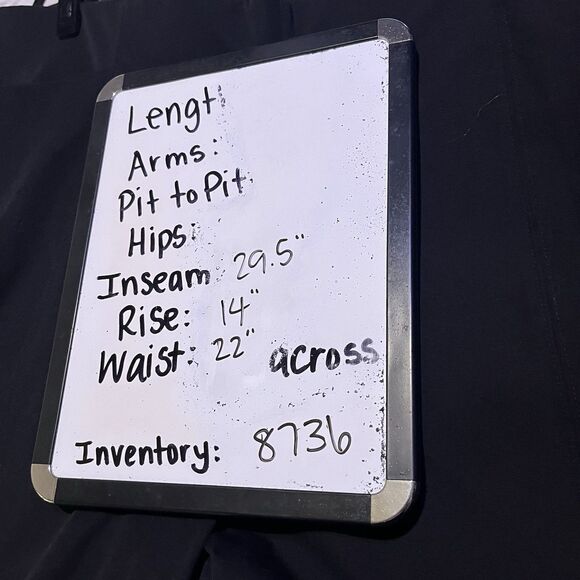 Lengt
Arms:
Pit to Pit
Hips:
Inseam 29.5"
Rise: 14"
Waist: 22" across
Inventory: 8736